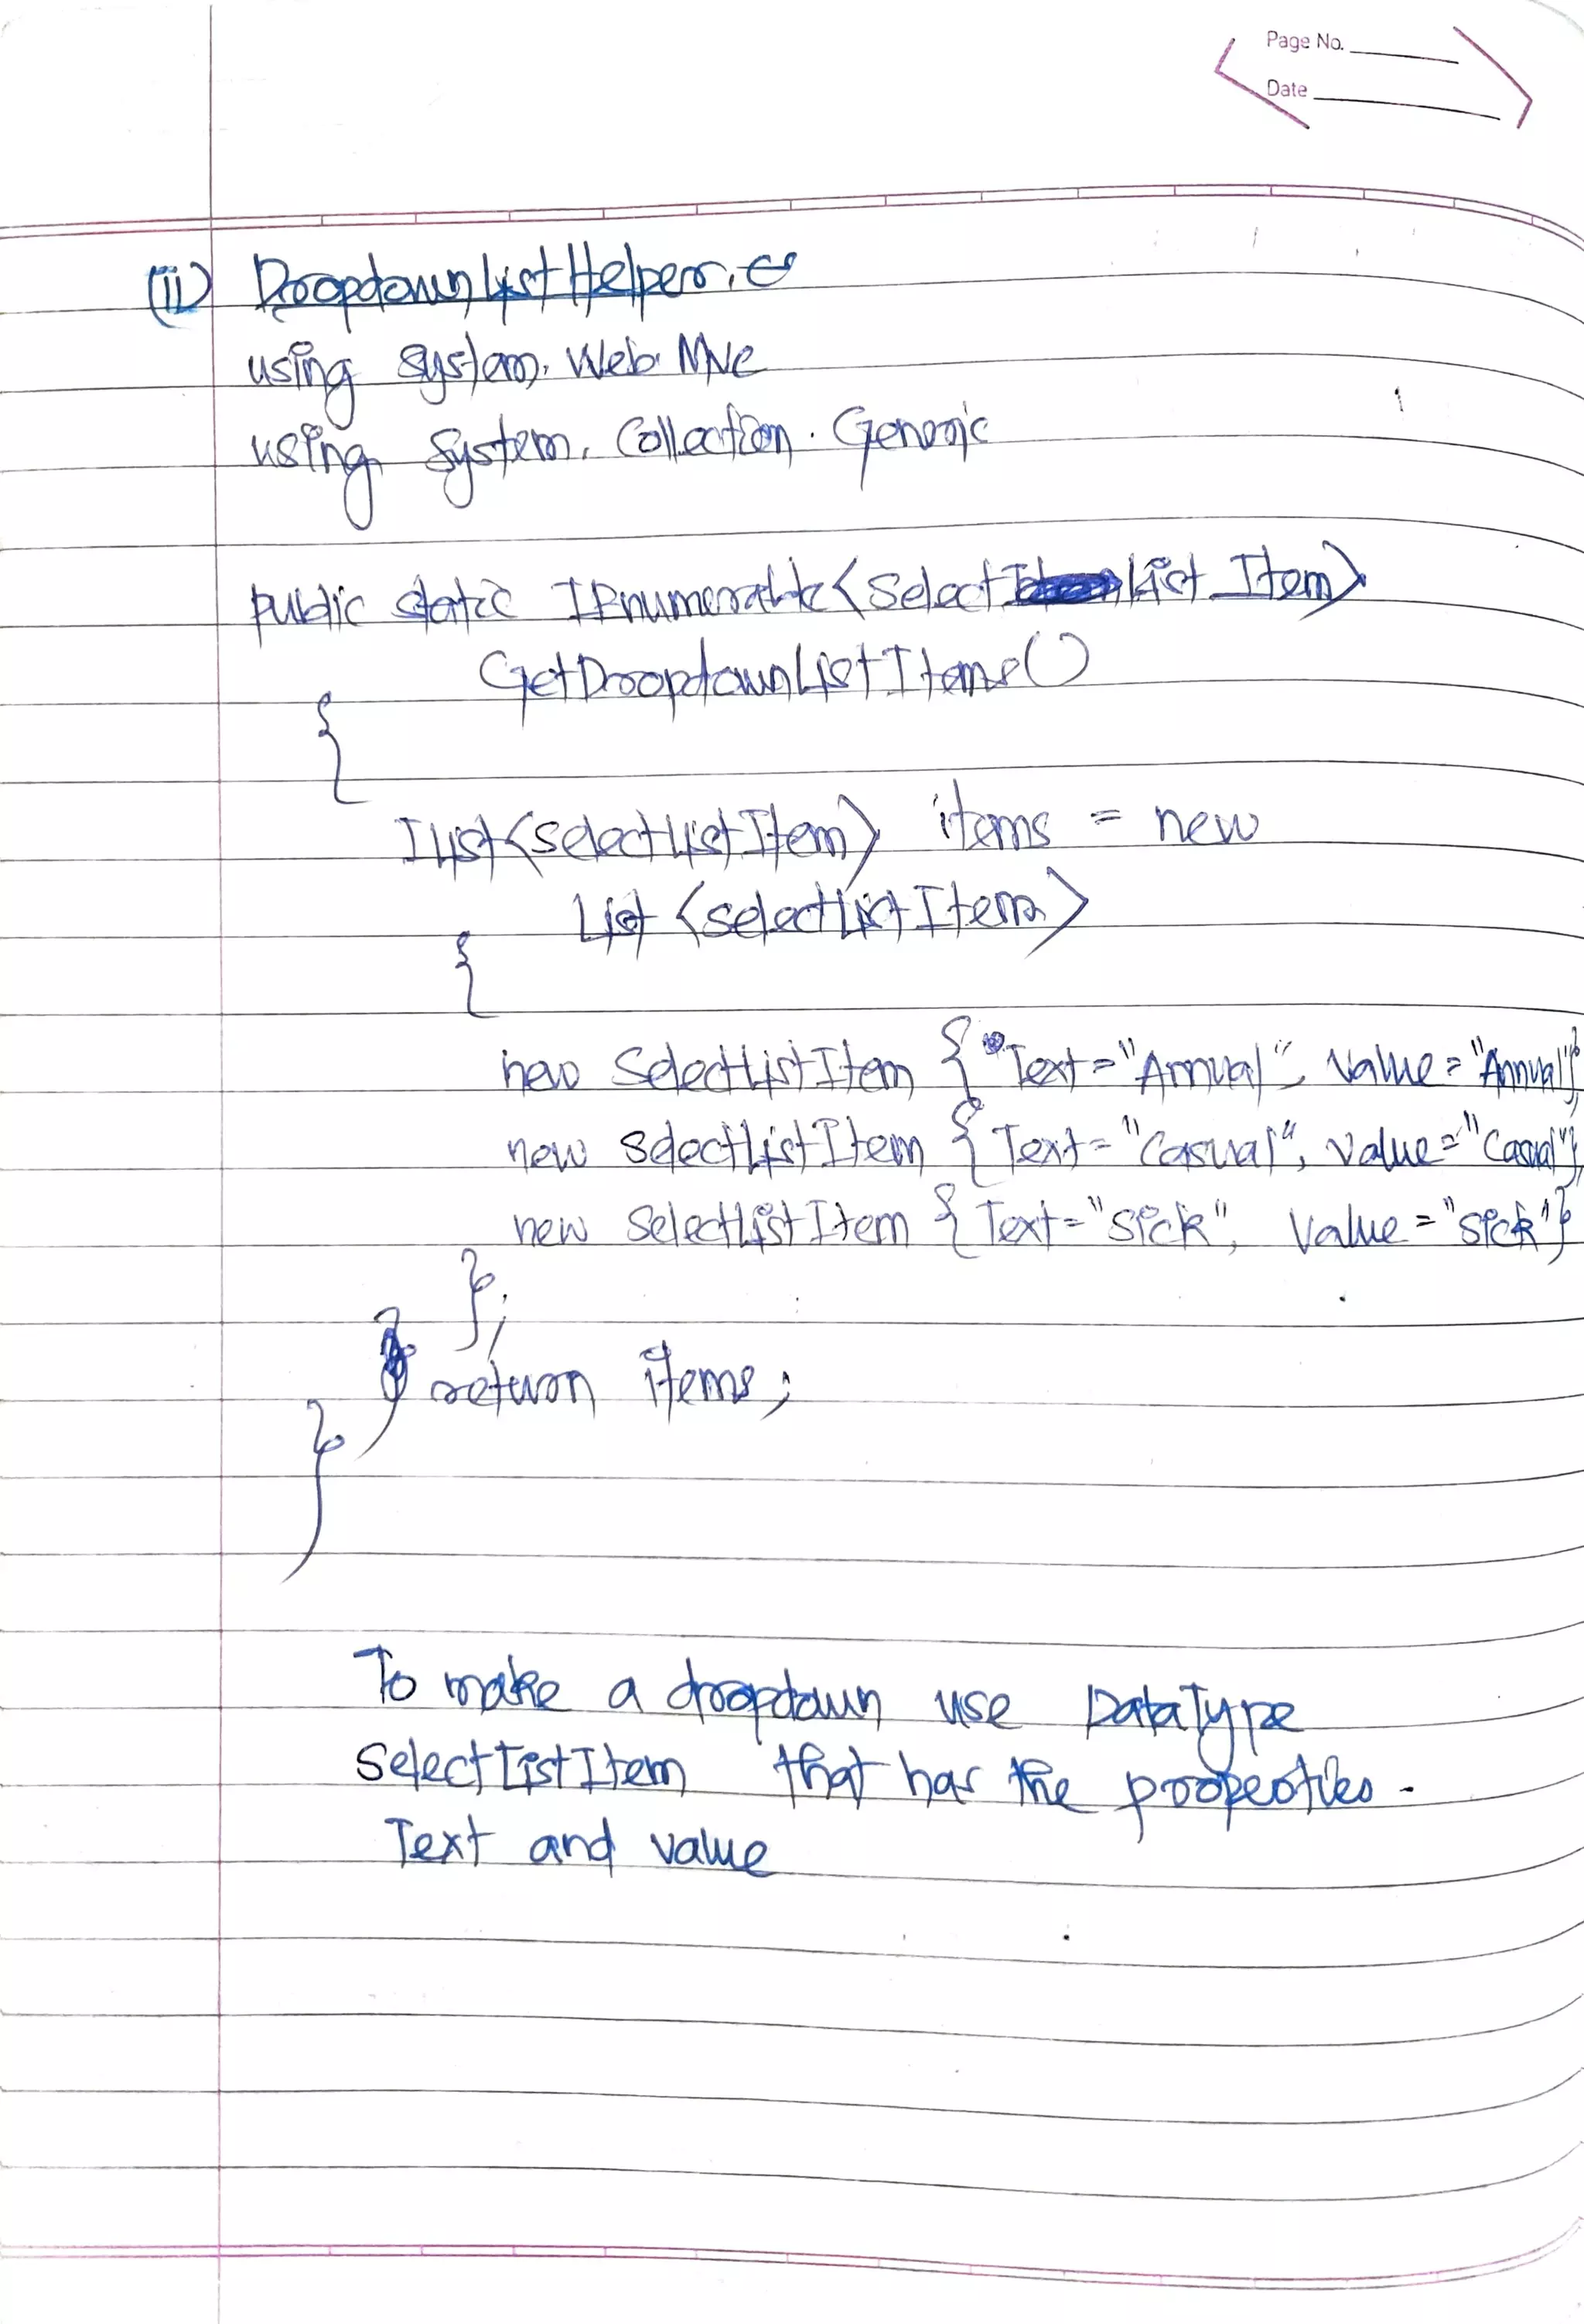 Page No.
Date
(ii) DropdownListHelper.cs
using System.Web.Mvc
using System.Collection.Generic
public static IEnumerable<SelectList Item>
GetDropdownListItems()
{
IList<SelectListItem> items = new
List <SelectListItem>
{
new SelectListItem { Text="Annual", Value="Annual"},
new SelectListItem { Text="Casual", Value="Casual"},
new SelectListItem { Text="Sick", Value="Sick"}
};
return items;
}
To make a dropdown use DataType
SelectListItem that has the properties.
Text and value